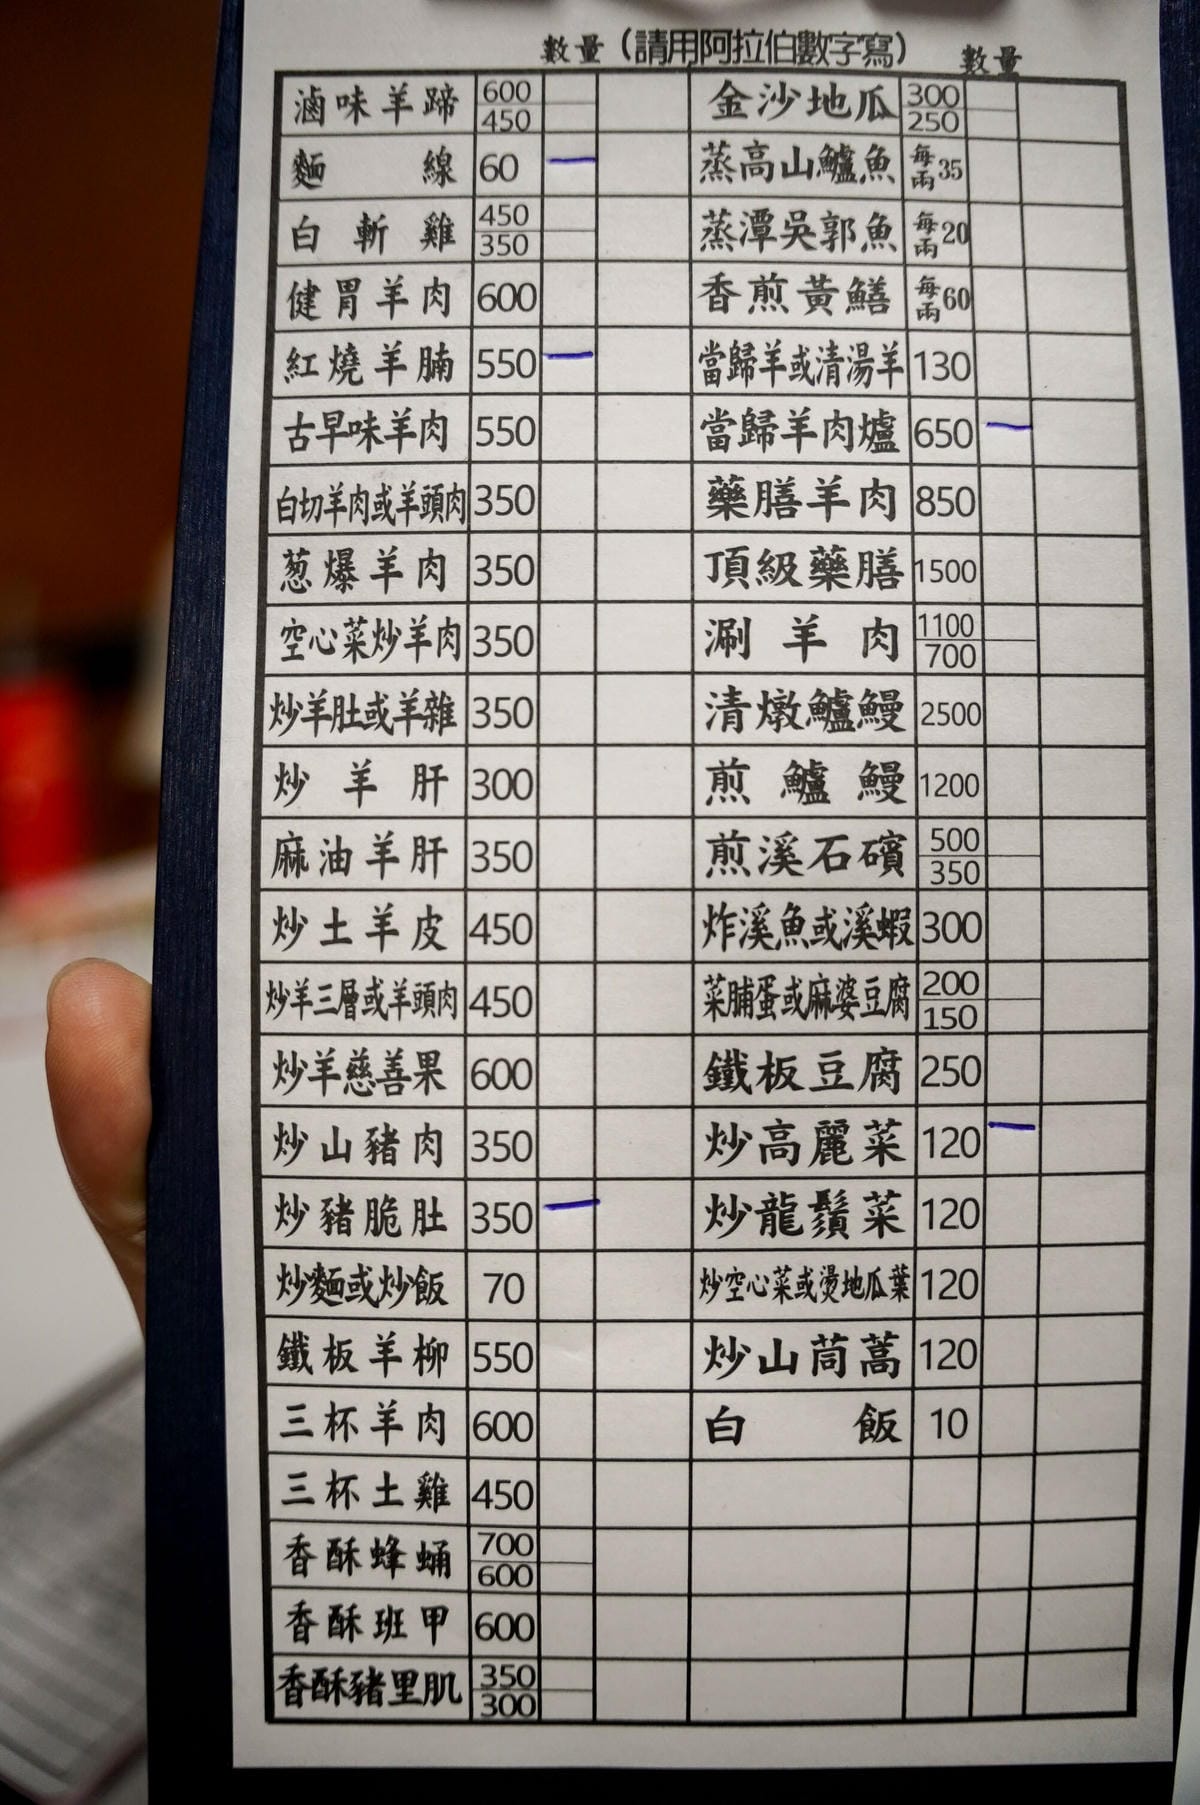 數量（請用阿拉伯數字寫） 數量
滷味羊蹄 600 450
麵線 60 一
白斬雞 450 350
健胃羊肉 600
紅燒羊腩 550 一
古早味羊肉 550
白切羊肉或羊頭肉 350
葱爆羊肉 350
空心菜炒羊肉 350
炒羊肚或羊雜 350
炒羊肝 300
麻油羊肝 350
炒土羊皮 450
炒羊三層或羊頭肉 450
炒羊慈善果 600
炒山豬肉 350
炒豬脆肚 350 一
炒麵或炒飯 70
鐵板羊柳 550
三杯羊肉 600
三杯土雞 450
香酥蜂蛹 700 600
香酥班甲 600
香酥豬里肌 350 300
金沙地瓜 300 250
蒸高山鱸魚 每兩35
蒸潭吳郭魚 每兩20
香煎黃鱔 每兩60
當歸羊或清湯羊 130
當歸羊肉爐 650 一
藥膳羊肉 850
頂級藥膳 1500
涮羊肉 1100 700
清燉鱸鰻 2500
煎鱸鰻 1200
煎溪石礦 500 350
炸溪魚或溪蝦 300
菜脯蛋或麻婆豆腐 200 150
鐵板豆腐 250
炒高麗菜 120 一
炒龍鬚菜 120
炒空心菜或燙地瓜葉 120
炒山茼蒿 120
白飯 10